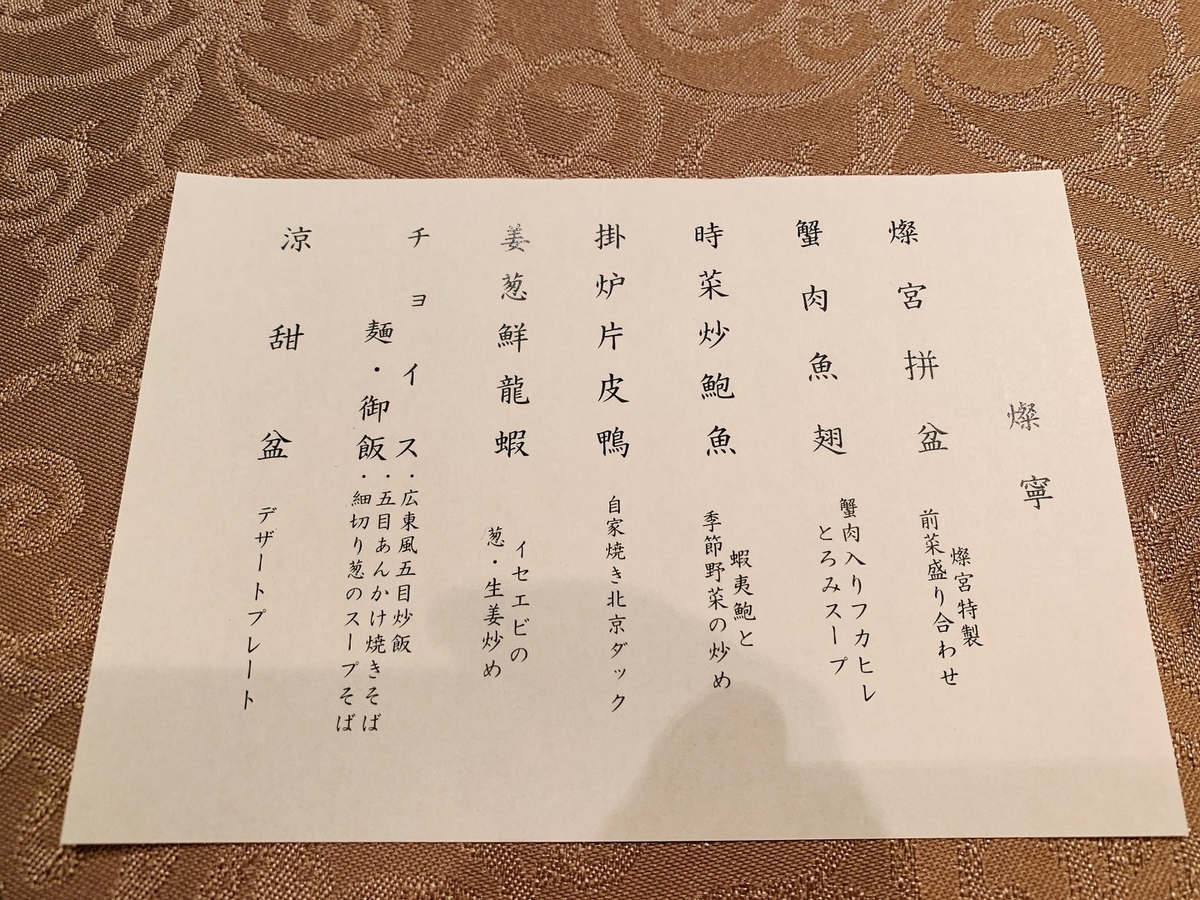 燦寧
燦宮拼盆
燦宮特製
前菜盛り合わせ
蟹肉魚翅
蟹肉入りフカヒレ
とろみスープ
時菜炒鮑魚
蝦夷鮑と
季節野菜の炒め
掛炉片皮鴨
自家焼き北京ダック
姜葱鮮龍蝦
イセエビの
葱・生姜炒め
チョイス
麺・御飯
・広東風五目炒飯
・五目あんかけ焼きそば
・細切り葱のスープそば
涼甜盆
デザートプレート